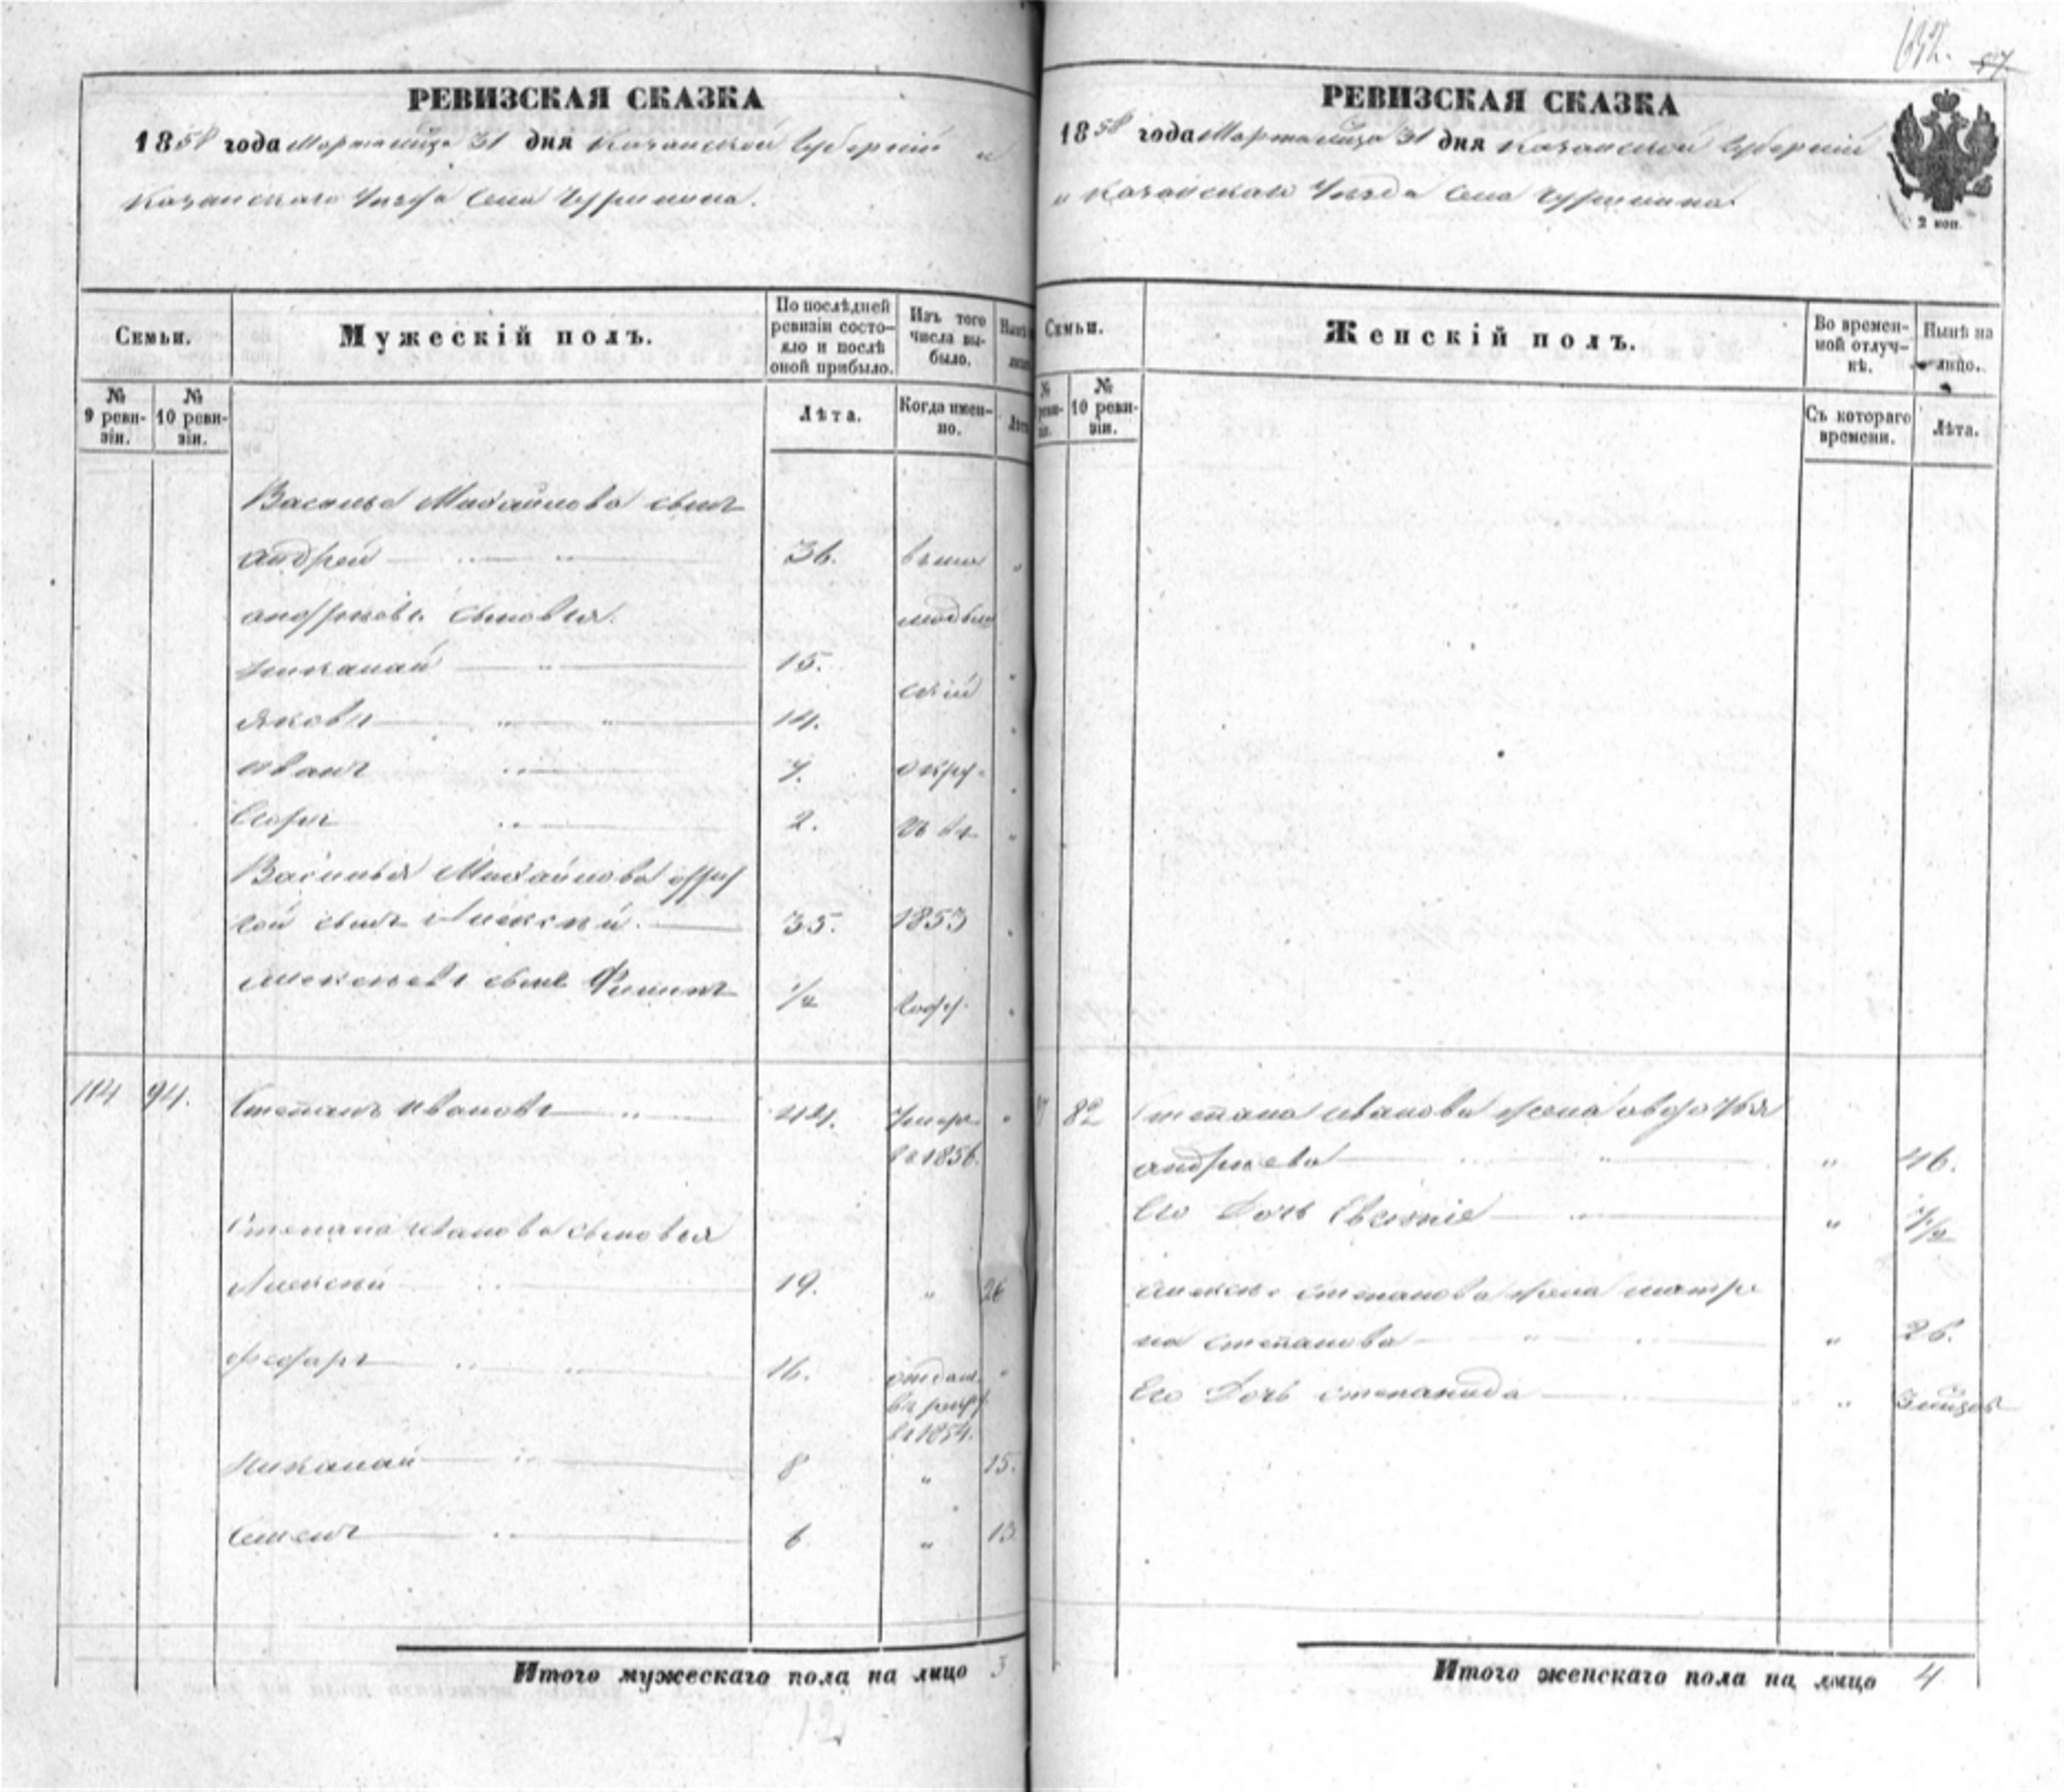 РЕВИЗСКАЯ СКАЗКА
1858 года Марта мца 31 дня Казанской Губерніи и
Казанскаго Уезда Села
Семьи.
Мужескій полъ.
По послѣдней ревизіи состояло и послѣ оной прибыло.
Изъ того числа выбыло.
№ 9 ревизіи.
№ 10 ревизіи.
Лѣта.
Когда именно.
Василья Михайлова сынъ
Андрей 36.
Андреевы сыновья.
Никалай 15.
Яковъ 14.
Иванъ 7. окру-
2.
Василья Михайлова
сынъ Алексей. 35. 1853
Алексеевъ сынъ Филипъ 1/2 году.
114 94. Степанъ Ивановъ 44. умеръ
въ 1856.
Степана Иванова сыновья
Алексей 19. " 26
Федаръ 16. отдан.
въ рекру
въ 1854.
Никалай 8 " 15.
Семенъ 6 " 13.
Итого мужескаго пола на лицо 3
12
57
РЕВИЗСКАЯ СКАЗКА
1858 года Марта мца 31 дня Казанской Губерніи
и Казанскаго Уезда Села
2 коп.
Семьи.
Женскій полъ.
Во временной отлучкѣ.
Нынѣ на лицо.
№ 10 ревизіи.
Съ котораго времени.
Лѣта.
82 Степана Иванова жена Авдотья
Андреева " 46.
Его дочь "
Алексея Степанова жена Матре
на Степанова " 26.
Его дочь Степанида " 3 мцов
Итого женскаго пола на лицо 4